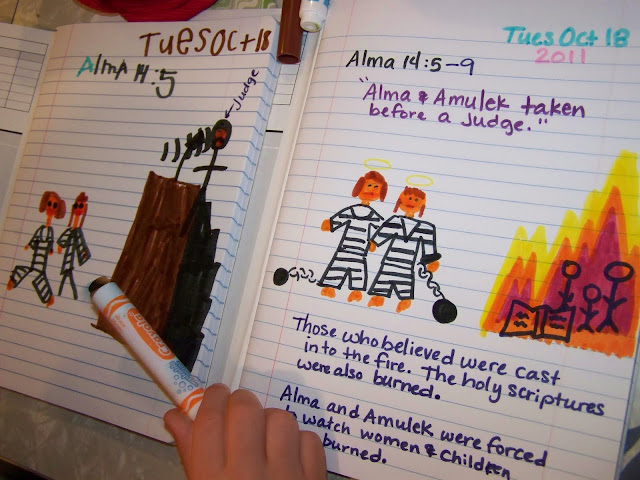 Tues Oct 18
Alma 14:5
Judge
Tues Oct 18
2011
Alma 14:5-9
"Alma & Amulek taken
before a Judge."
Those who believed were cast
into the fire. The holy scriptures
were also burned.
Alma and Amulek were forced
watch women & children
burned.
Crayola